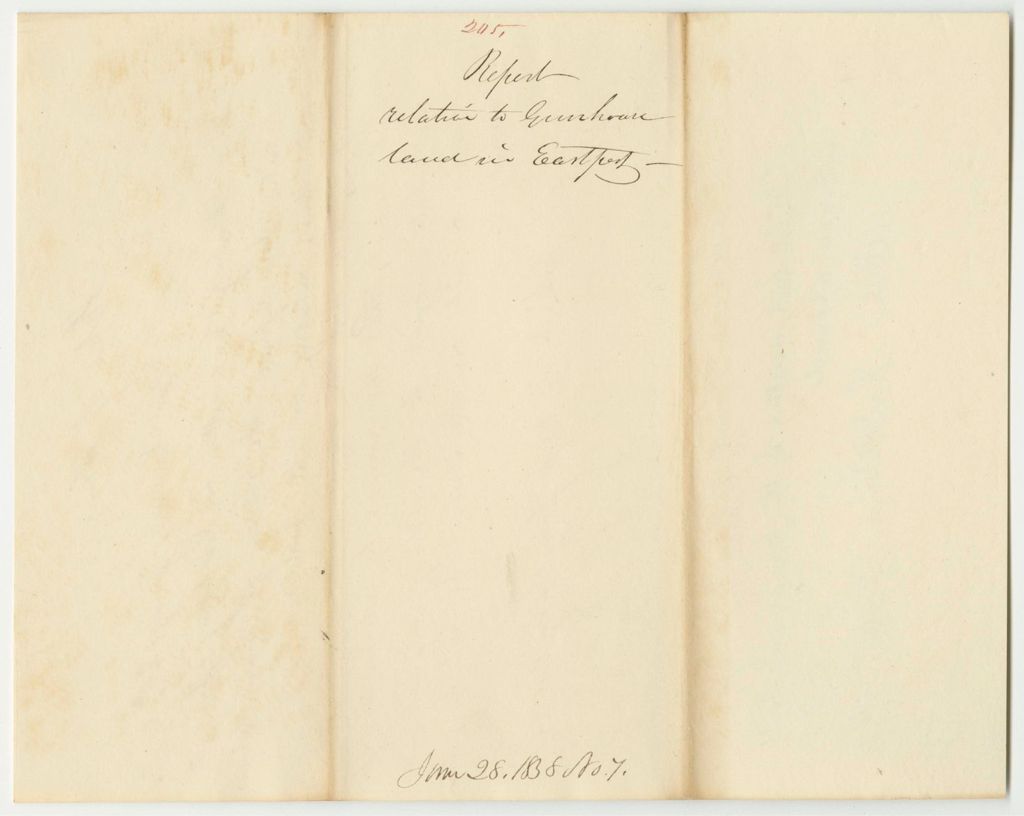 205.
Report
relative to Gunhouse
land in Eastport —
June 28. 1838 No. 7.